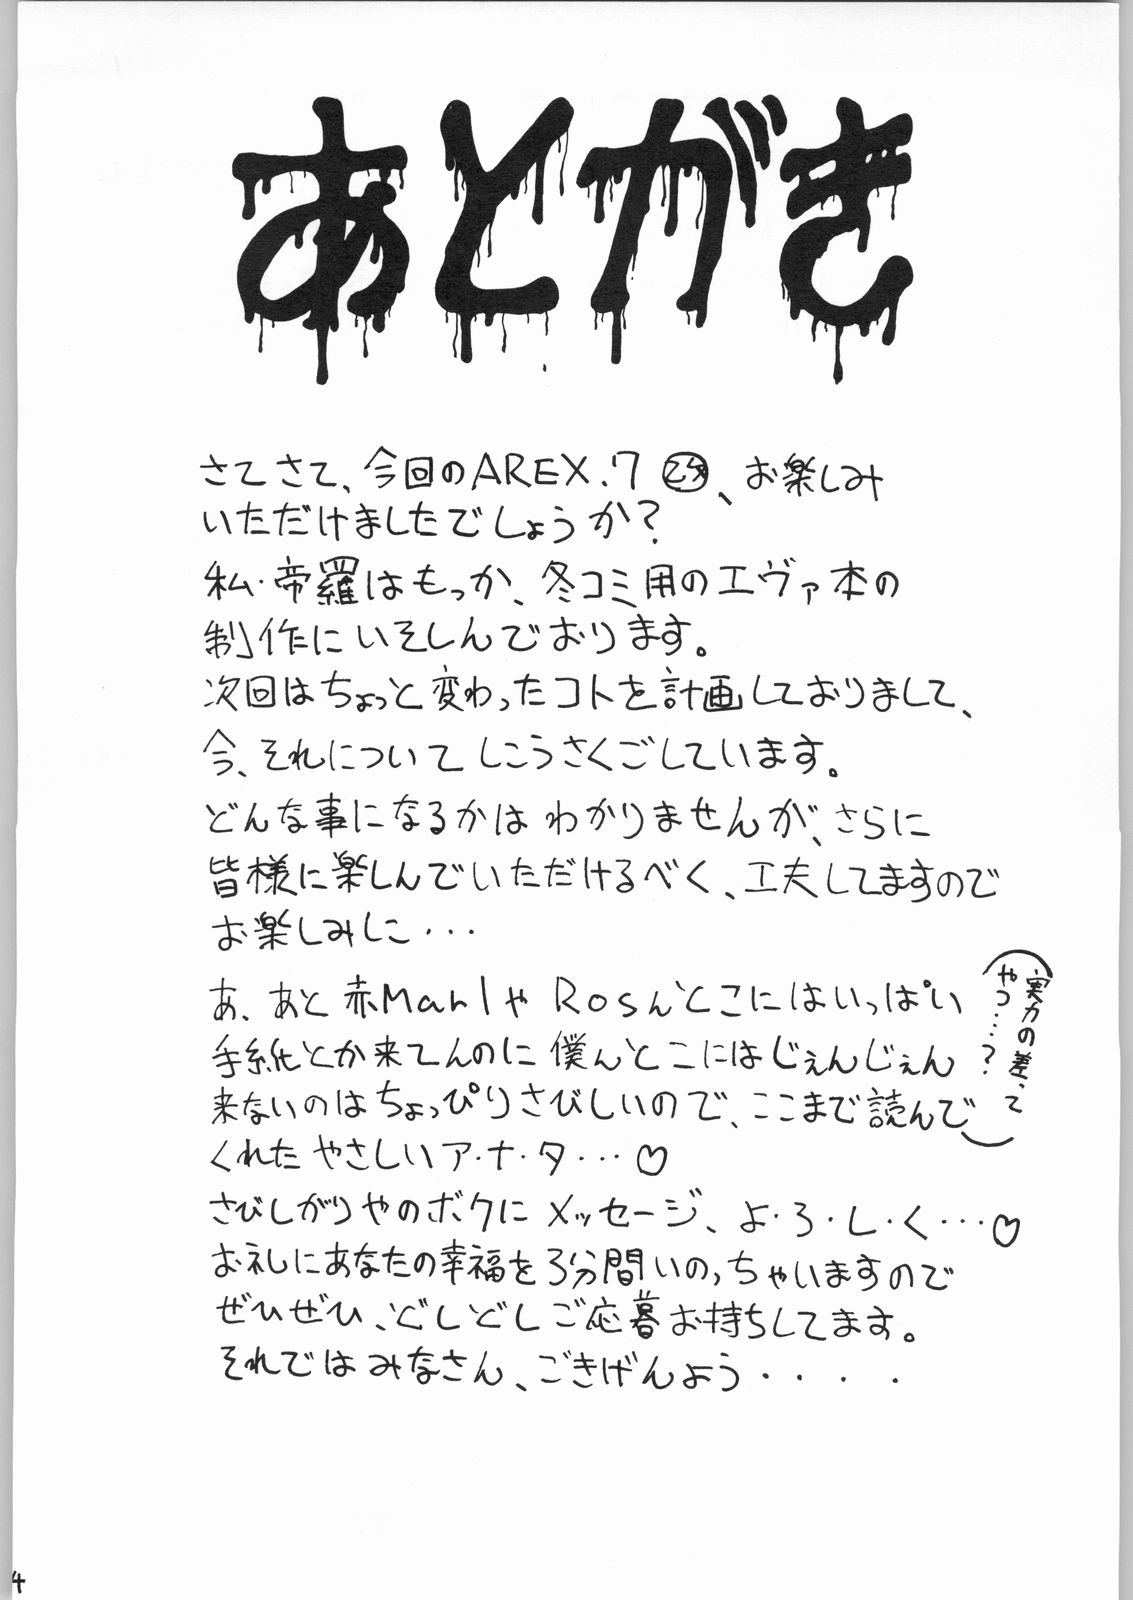 あとがき
さてさて、今回のAREX.7 、お楽しみ
いただけましたでしょうか？
私・帝羅はもっか、冬コミ用のエヴァ本の
制作にいそしんでおります。
次回はちょっと変わったコトを計画しておりまして、
今、それについてしこうさくごしています。
どんな事になるかはわかりませんが、さらに
皆様に楽しんでいただけるべく、工夫してますので
お楽しみに・・・
あ、あと赤MarlやRosんとこにはいっぱい
手紙とか来てんのに僕んとこにはじぇんじぇん
来ないのはちょっぴりさびしいので、ここまで読んで
くれたやさしいア・ナ・タ・・・♡
さびしがりやのボクにメッセージ、よ・ろ・し・く・・・♡
お礼にあなたの幸福を3分間いのっちゃいますので
ぜひぜひ、どしどしご応募お持ちしてます。
それではみなさん、ごきげんよう・・・・
(実力の差って
やつ・・・？)
4